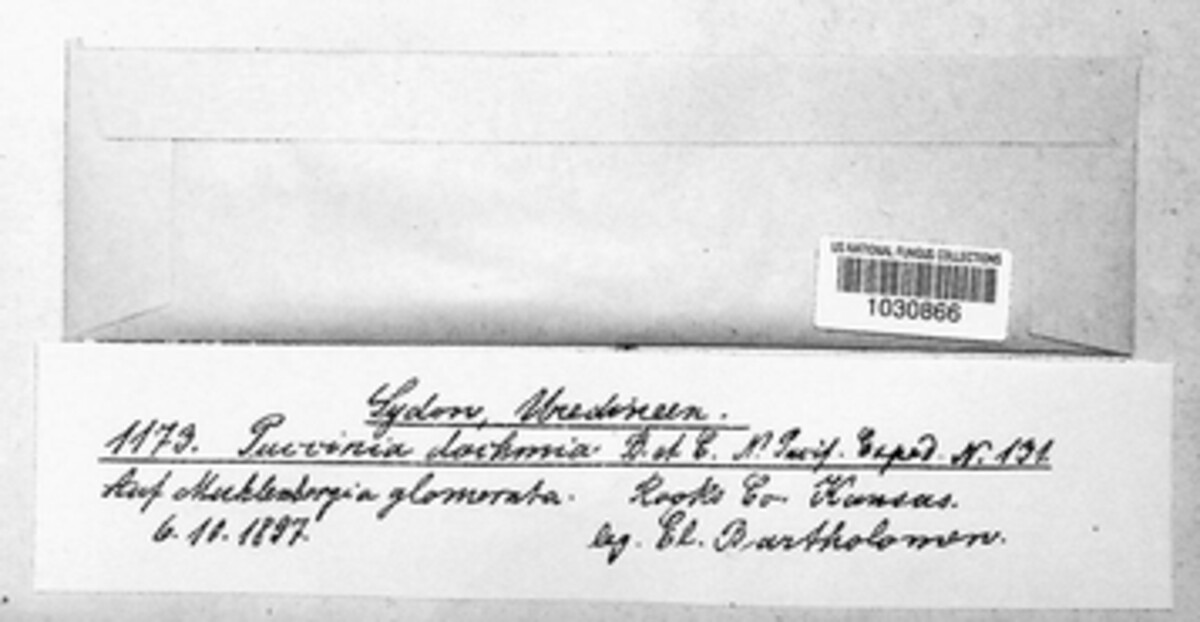 US NATIONAL FUNGUS COLLECTIONS
1030866
Sydow, Uredineen.
1173. Puccinia dochmia B. et C. N. Pacif. Exped. N. 131.
Auf Muhlenbergia glomerata. Rooks Co. Kansas.
6. 10. 1897. leg. El. Bartholomew.